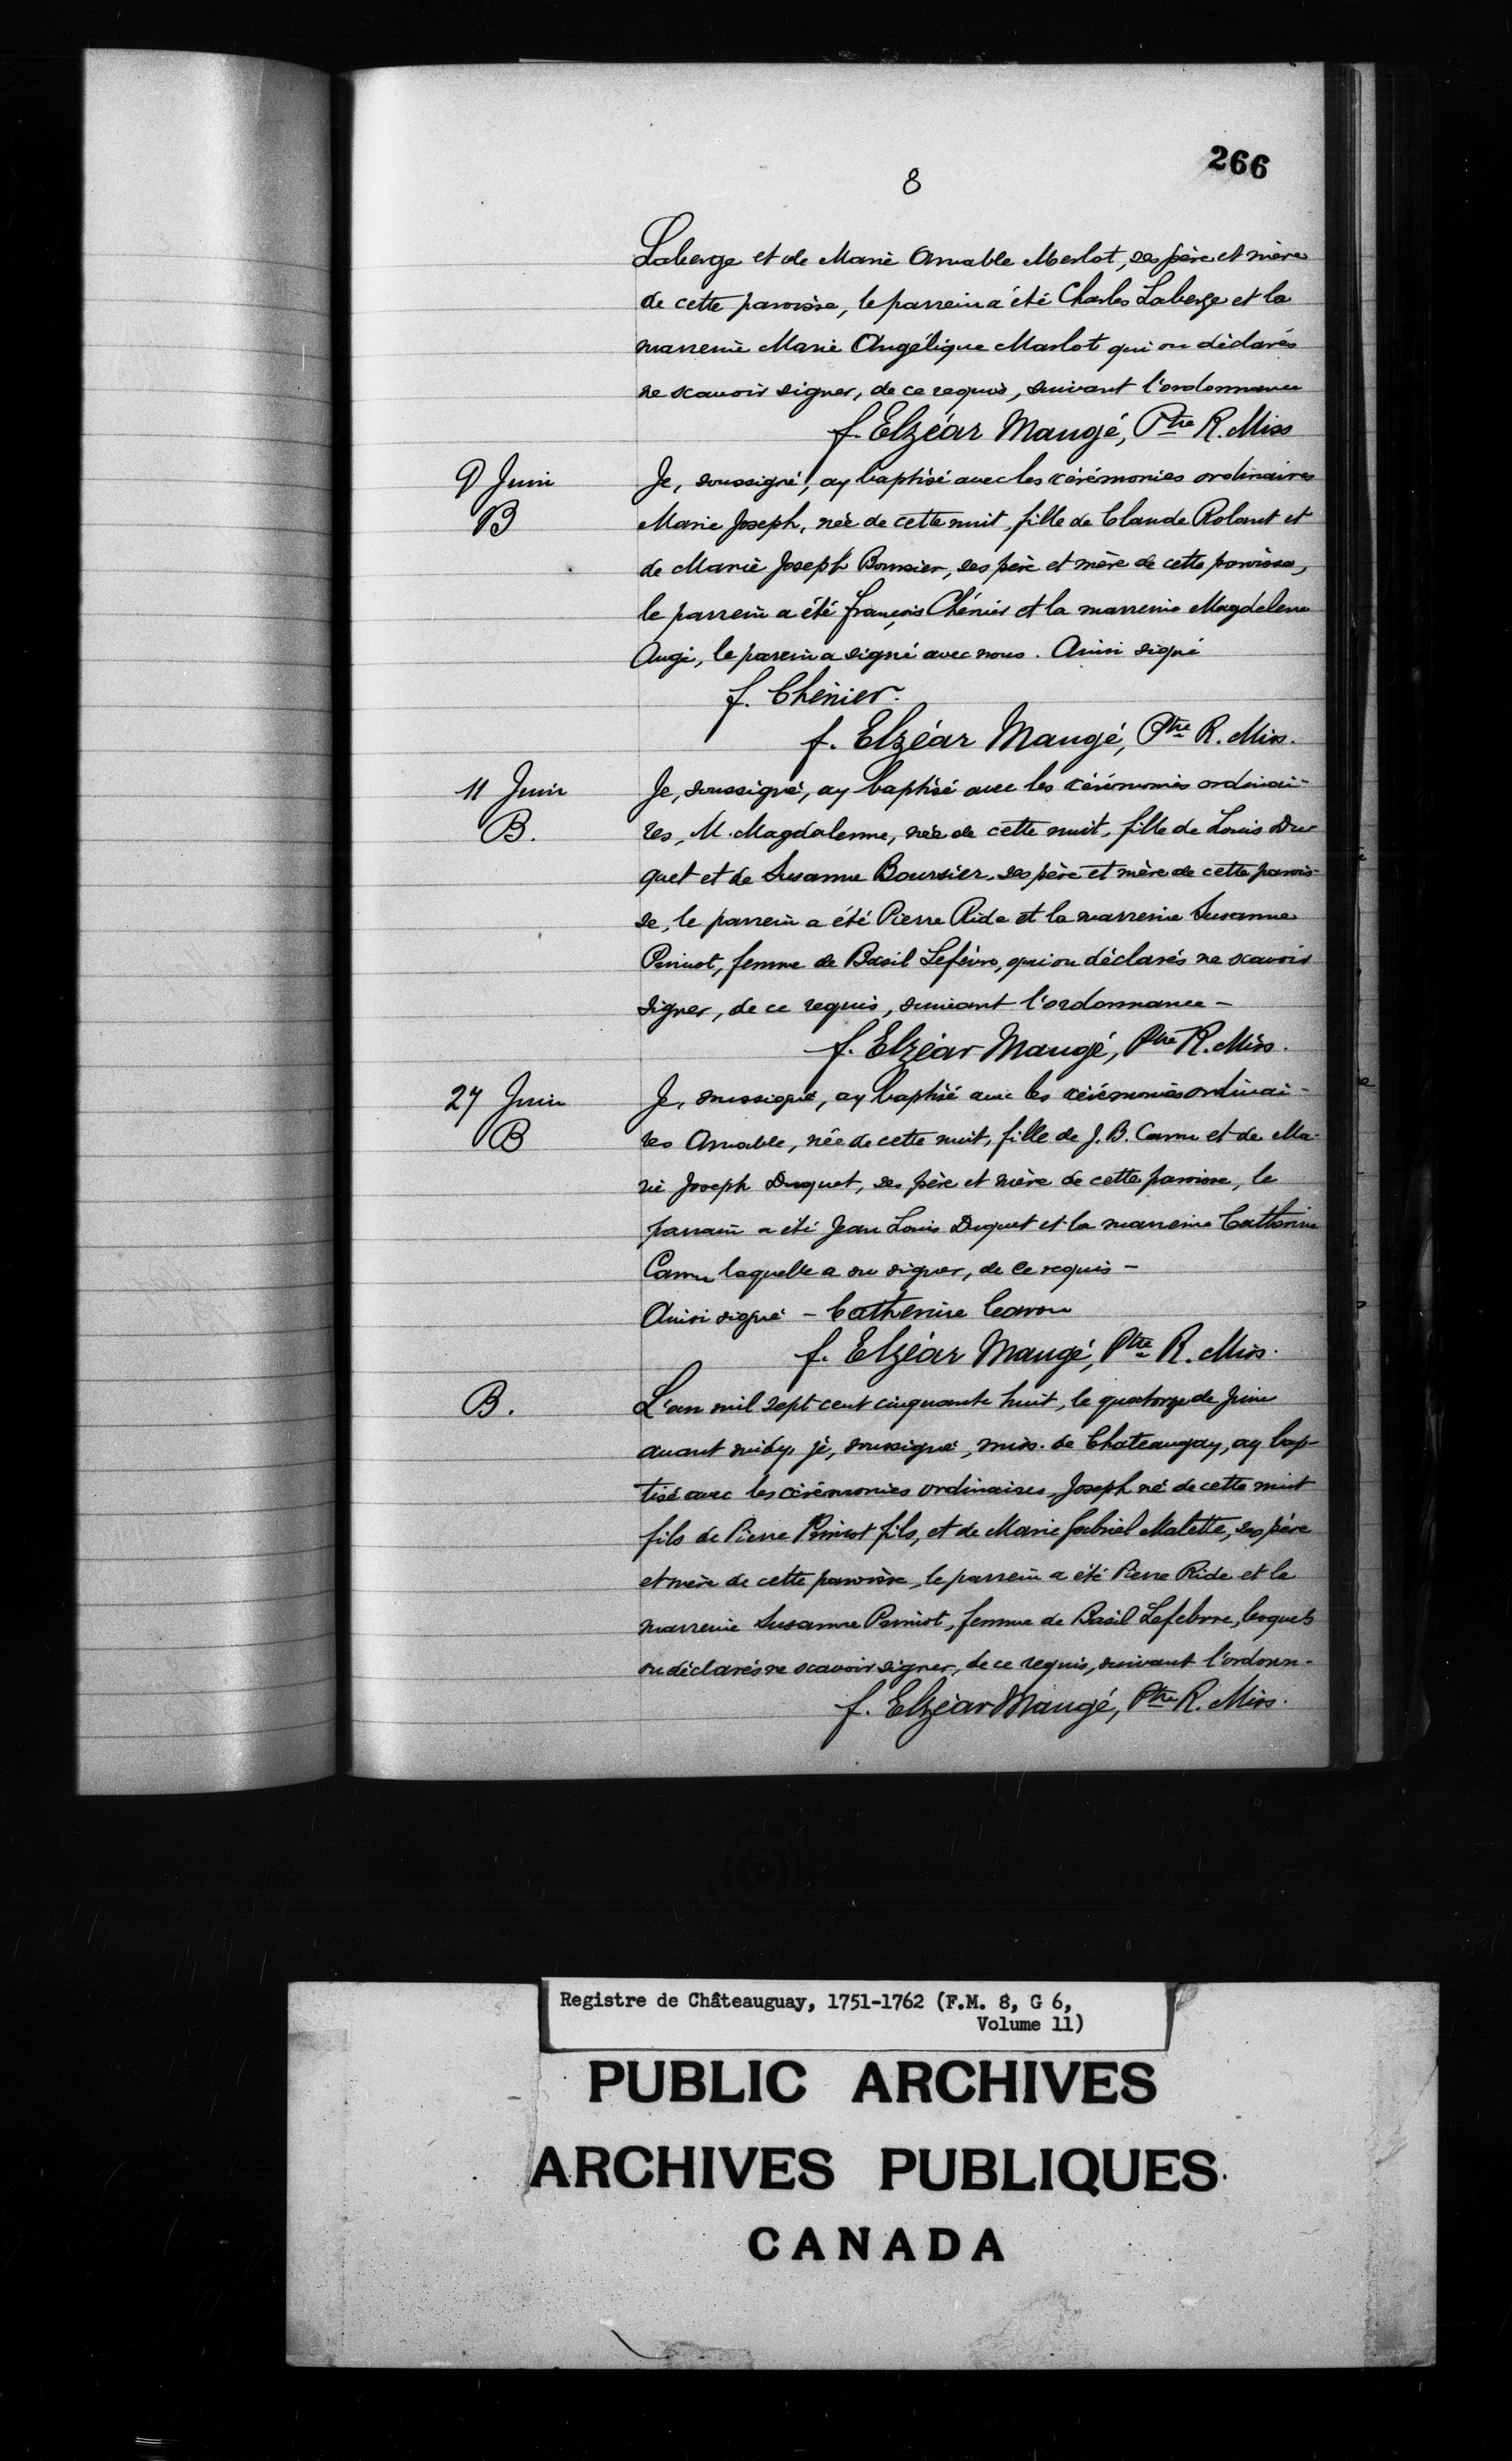 266
8
Laberge et de Marie Amable Merlot, ses père et mère
de cette paroisse, le parrein a été Charles Laberge et la
marreine Marie Angélique Marlot qui on déclarés
ne scavoir signer, de ce requis, suivant l'ordonnance
f. Elzéar Maugé, Ptre R. Miss
9 Juin
B
Je, soussigné, ay baptisé avec les cérémonies ordinaires
Marie Joseph, née de cette nuit, fille de Claude Rolant et
de Marie Joseph Boursier, ses père et mère de cette paroisse,
le parrein a été françois Chénier et la marreine Magdelene
Augé, le parrein a signé avec nous. Ainsi signé
f. Chénier.
f. Elzéar Maugé, Ptre R. Miss.
11 Juin
B.
Je, soussigné, ay baptisé avec les cérémonies ordinai-
res, M. Magdalenne, née de cette nuit, fille de Louis Du-
quet et de Susanne Boursier, ses père et mère de cette parois-
se, le parrein a été Pierre Ride et la marreine Susanne
Primot, femme de Basil Lefèvre, qui on déclarés ne scavoir
signer, de ce requis, suivant l'ordonnance -
f. Elzéar Maugé, Ptre R. Miss.
27 Juin
B
Je, soussigné, ay baptisé avec les cérémonies ordinai-
res Amable, née de cette nuit, fille de J. B. Caron et de Ma-
rie Joseph Duquet, ses père et mère de cette paroisse, le
parrain a été Jean Louis Duquet et la marreine Catherine
Caron laquelle a su signer, de ce requis -
Ainsi signé - Catherine Caron
f. Elzéar Maugé, Ptre R. Miss.
B.
L'an mil sept cent cinquante huit, le quatorze de Juin
avant midy, je, soussigné, miss. de Chateaugay, ay bap-
tisé avec les cérémonies ordinaires, Joseph né de cette nuit
fils de Pierre Primot fils, et de Marie Gabriel Malette, ses père
et mère de cette paroisse, le parrein a été Pierre Ride et la
marreine Susanne Primot, femme de Basil Lefebvre, lesquels
on déclarés ne scavoir signer, de ce requis, suivant l'ordonn.
f. Elzéar Maugé, Ptre R. Miss.
Registre de Châteauguay, 1751-1762 (F.M. 8, G 6,
Volume 11)
PUBLIC ARCHIVES
ARCHIVES PUBLIQUES
CANADA